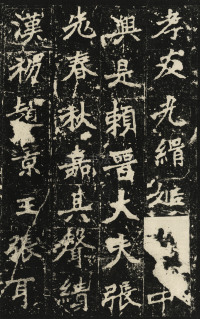 孝友光緝中
興是賴晉大夫張
老春秋嘉其聲績
漢初趙景王張耳